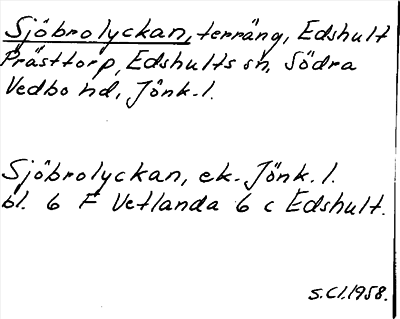 Sjöbrolyckan, terräng, Edshult
Prästtorp, Edshults sn, Södra
Vedbo hd, Jönk. l.
Sjöbrolyckan, ek. Jönk. l.
bl. 6 F Vetlanda 6 c Edshult.
S.Cl.1958.